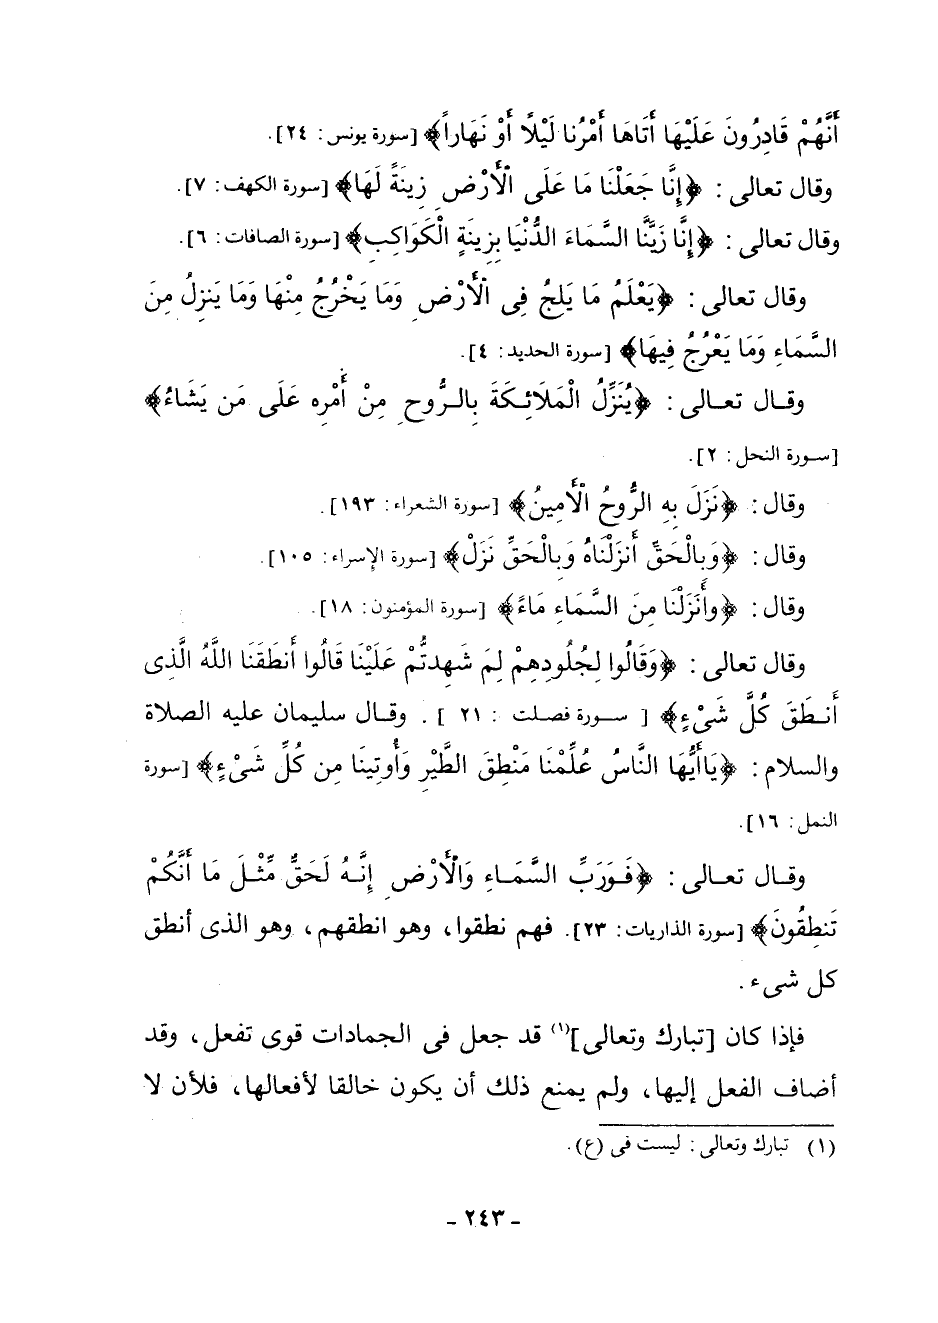 أَنَّهُمْ قَادِرُونَ عَلَيْهَا أَتَاهَا أَمْرُنا لَيْلًا أَوْ نَهَاراً﴾ [سورة يونس: ٢٤].
وقال تعالى: ﴿إِنَّا جَعَلْنَا مَا عَلَى الْأَرْضِ زِينَةً لَهَا﴾ [سورة الكهف: ٧].
وقال تعالى: ﴿إِنَّا زَيَّنَّا السَّمَاءَ الدُّنْيَا بِزِينَةٍ الْكَوَاكِبِ﴾ [سورة الصافات: ٦].
وقال تعالى: ﴿يَعْلَمُ مَا يَلِجُ فِى الْأَرْضِ وَمَا يَخْرُجُ مِنْهَا وَمَا يَنزِلُ مِنَ
السَّمَاءِ وَمَا يَعْرُجُ فِيهَا﴾ [سورة الحديد: ٤].
وقال تعالى: ﴿يُنَزِّلُ الْمَلَائِكَةَ بِالرُّوحِ مِنْ أَمْرِه عَلَى مَن يَشَاءُ﴾
[سورة النحل: ٢].
وقال: ﴿نَزَلَ بِهِ الرُّوحُ الْأَمِينُ﴾ [سورة الشعراء: ١٩٣].
وقال: ﴿وَبِالْحَقِّ أَنزَلْنَاهُ وَبِالْحَقِّ نَزَلْ﴾ [سورة الإسراء: ١٠٥].
وقال: ﴿وأَنزَلْنَا مِنَ السَّمَاءِ مَاءً﴾ [سورة المؤمنون: ١٨].
وقال تعالى: ﴿وَقَالُوا لِجُلُودِهِمْ لِمَ شَهِدتُّمْ عَلَيْنَا قَالُوا أَنطَقَنَا اللَّهُ الَّذِى
أَنطَقَ كُلَّ شَىْءٍ﴾ [ سورة فصلت : ٢١ ]. وقال سليمان عليه الصلاة
والسلام: ﴿يَاأَيُّهَا النَّاسُ عُلِّمْنَا مَنْطِقَ الطَّيْرِ وَأُوتِينَا مِن كُلِّ شَىْءٍ﴾ [سورة
النمل: ١٦].
وقال تعالى: ﴿فَوَرَبِّ السَّمَاءِ وَالْأَرْضِ إِنَّهُ لَحَقٌّ مِّثْلَ مَا أَنَّكُمْ
تَنطِقُونَ﴾ [سورة الذاريات: ٢٣]. فهم نطقوا، وهو انطقهم، وهو الذى أنطق
كل شىء.
فإذا كان [تبارك وتعالى](١) قد جعل فى الجمادات قوى تفعل، وقد
أضاف الفعل إليها، ولم يمنع ذلك أن يكون خالقا لأفعالها، فلأن لا
(١) تبارك وتعالى: ليست فى (ع).
- ٢٤٣ -